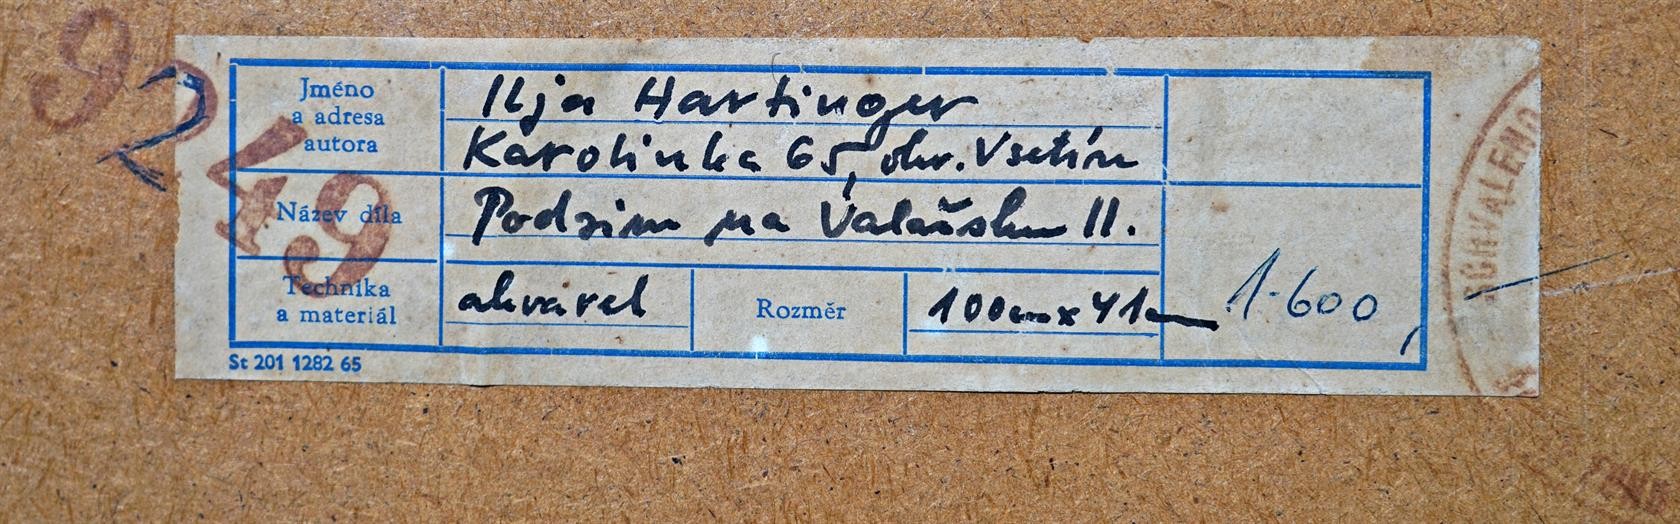 92
Jméno
a adresa
autora
Ilja Hartinger
Karolinka 65, okr. Vsetín
249
Název díla
Podzim na Valašsku II.
Technika
a materiál
akvarel
Rozměr
100cm x 41cm
1.600,
St 201 1282 65
SCHVÁLENO